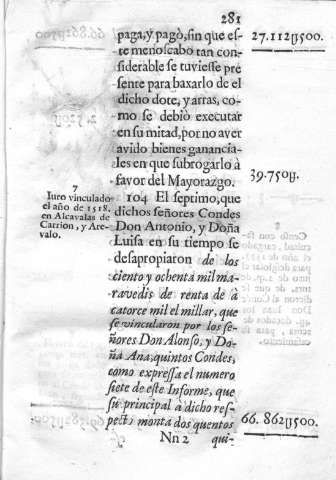 281
paga, y pagò, sin que es-
te menoscabo tan con-
siderable se tuviesse pre
sente para baxarlo de el
dicho dote, y arras, co-
mo se debiò executar
en su mitad, por no aver
avido bienes ganancia-
les en que subrogarlo à
favor del Mayorazgo.
104 El septimo, que
dichos señores Condes
Don Antonio, y Doña
Luisa en su tiempo se
desapropiaron de los
ciento y ochenta mil ma-
ravedis de renta de à
catorce mil el millar, que
se vincularon por los se-
ñores Don Alonso, y Do-
ña Ana, quintos Condes,
como expressa el numero
siete de este Informe, que
su principal à dicho res-
pecto monta dos quentos
Nn 2 qui-
7
Iuro vinculado
el año de 1518.
en Alcavalas de
Carrion, y Are-
valo.
27.112ɥ500.
39.750ɥ.
66.862ɥ500.